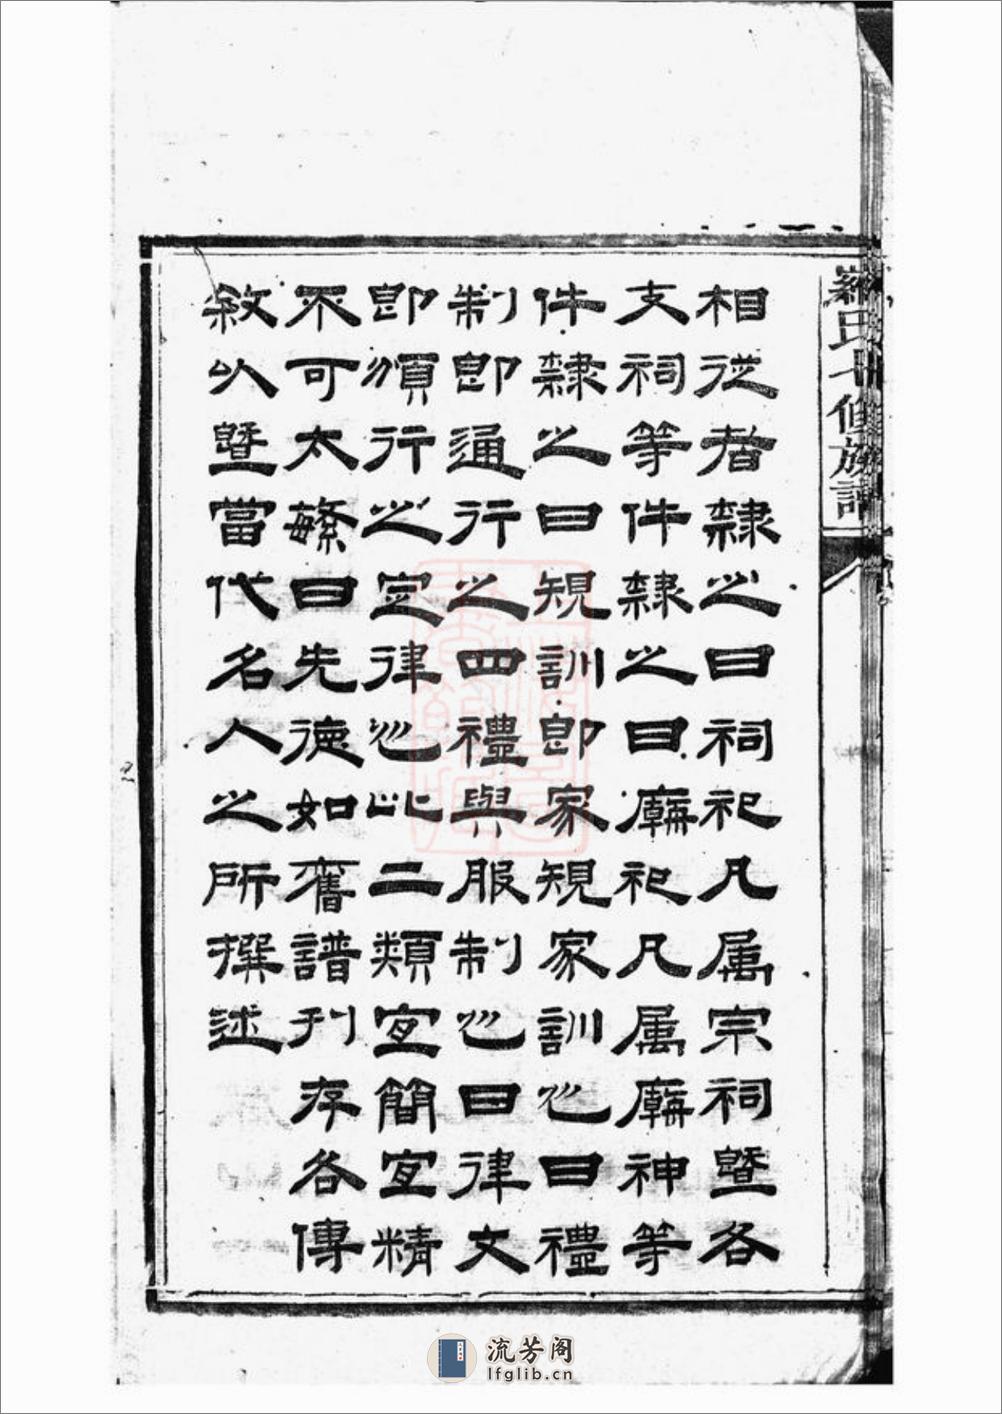 羅氏七修族譜
相從者隸之曰祠祀凡属宗祠暨各
支祠等件隸之曰廟祀凡属廟神等
件隸之曰規訓即家規家訓也曰禮
制即通行之四禮與服制也曰律文
即頒行之定律也此二類宜簡宜精
不可太繁曰先德如舊譜刊存各傳
敘以暨當代名人之所撰述
流芳阁
lfglib.cn